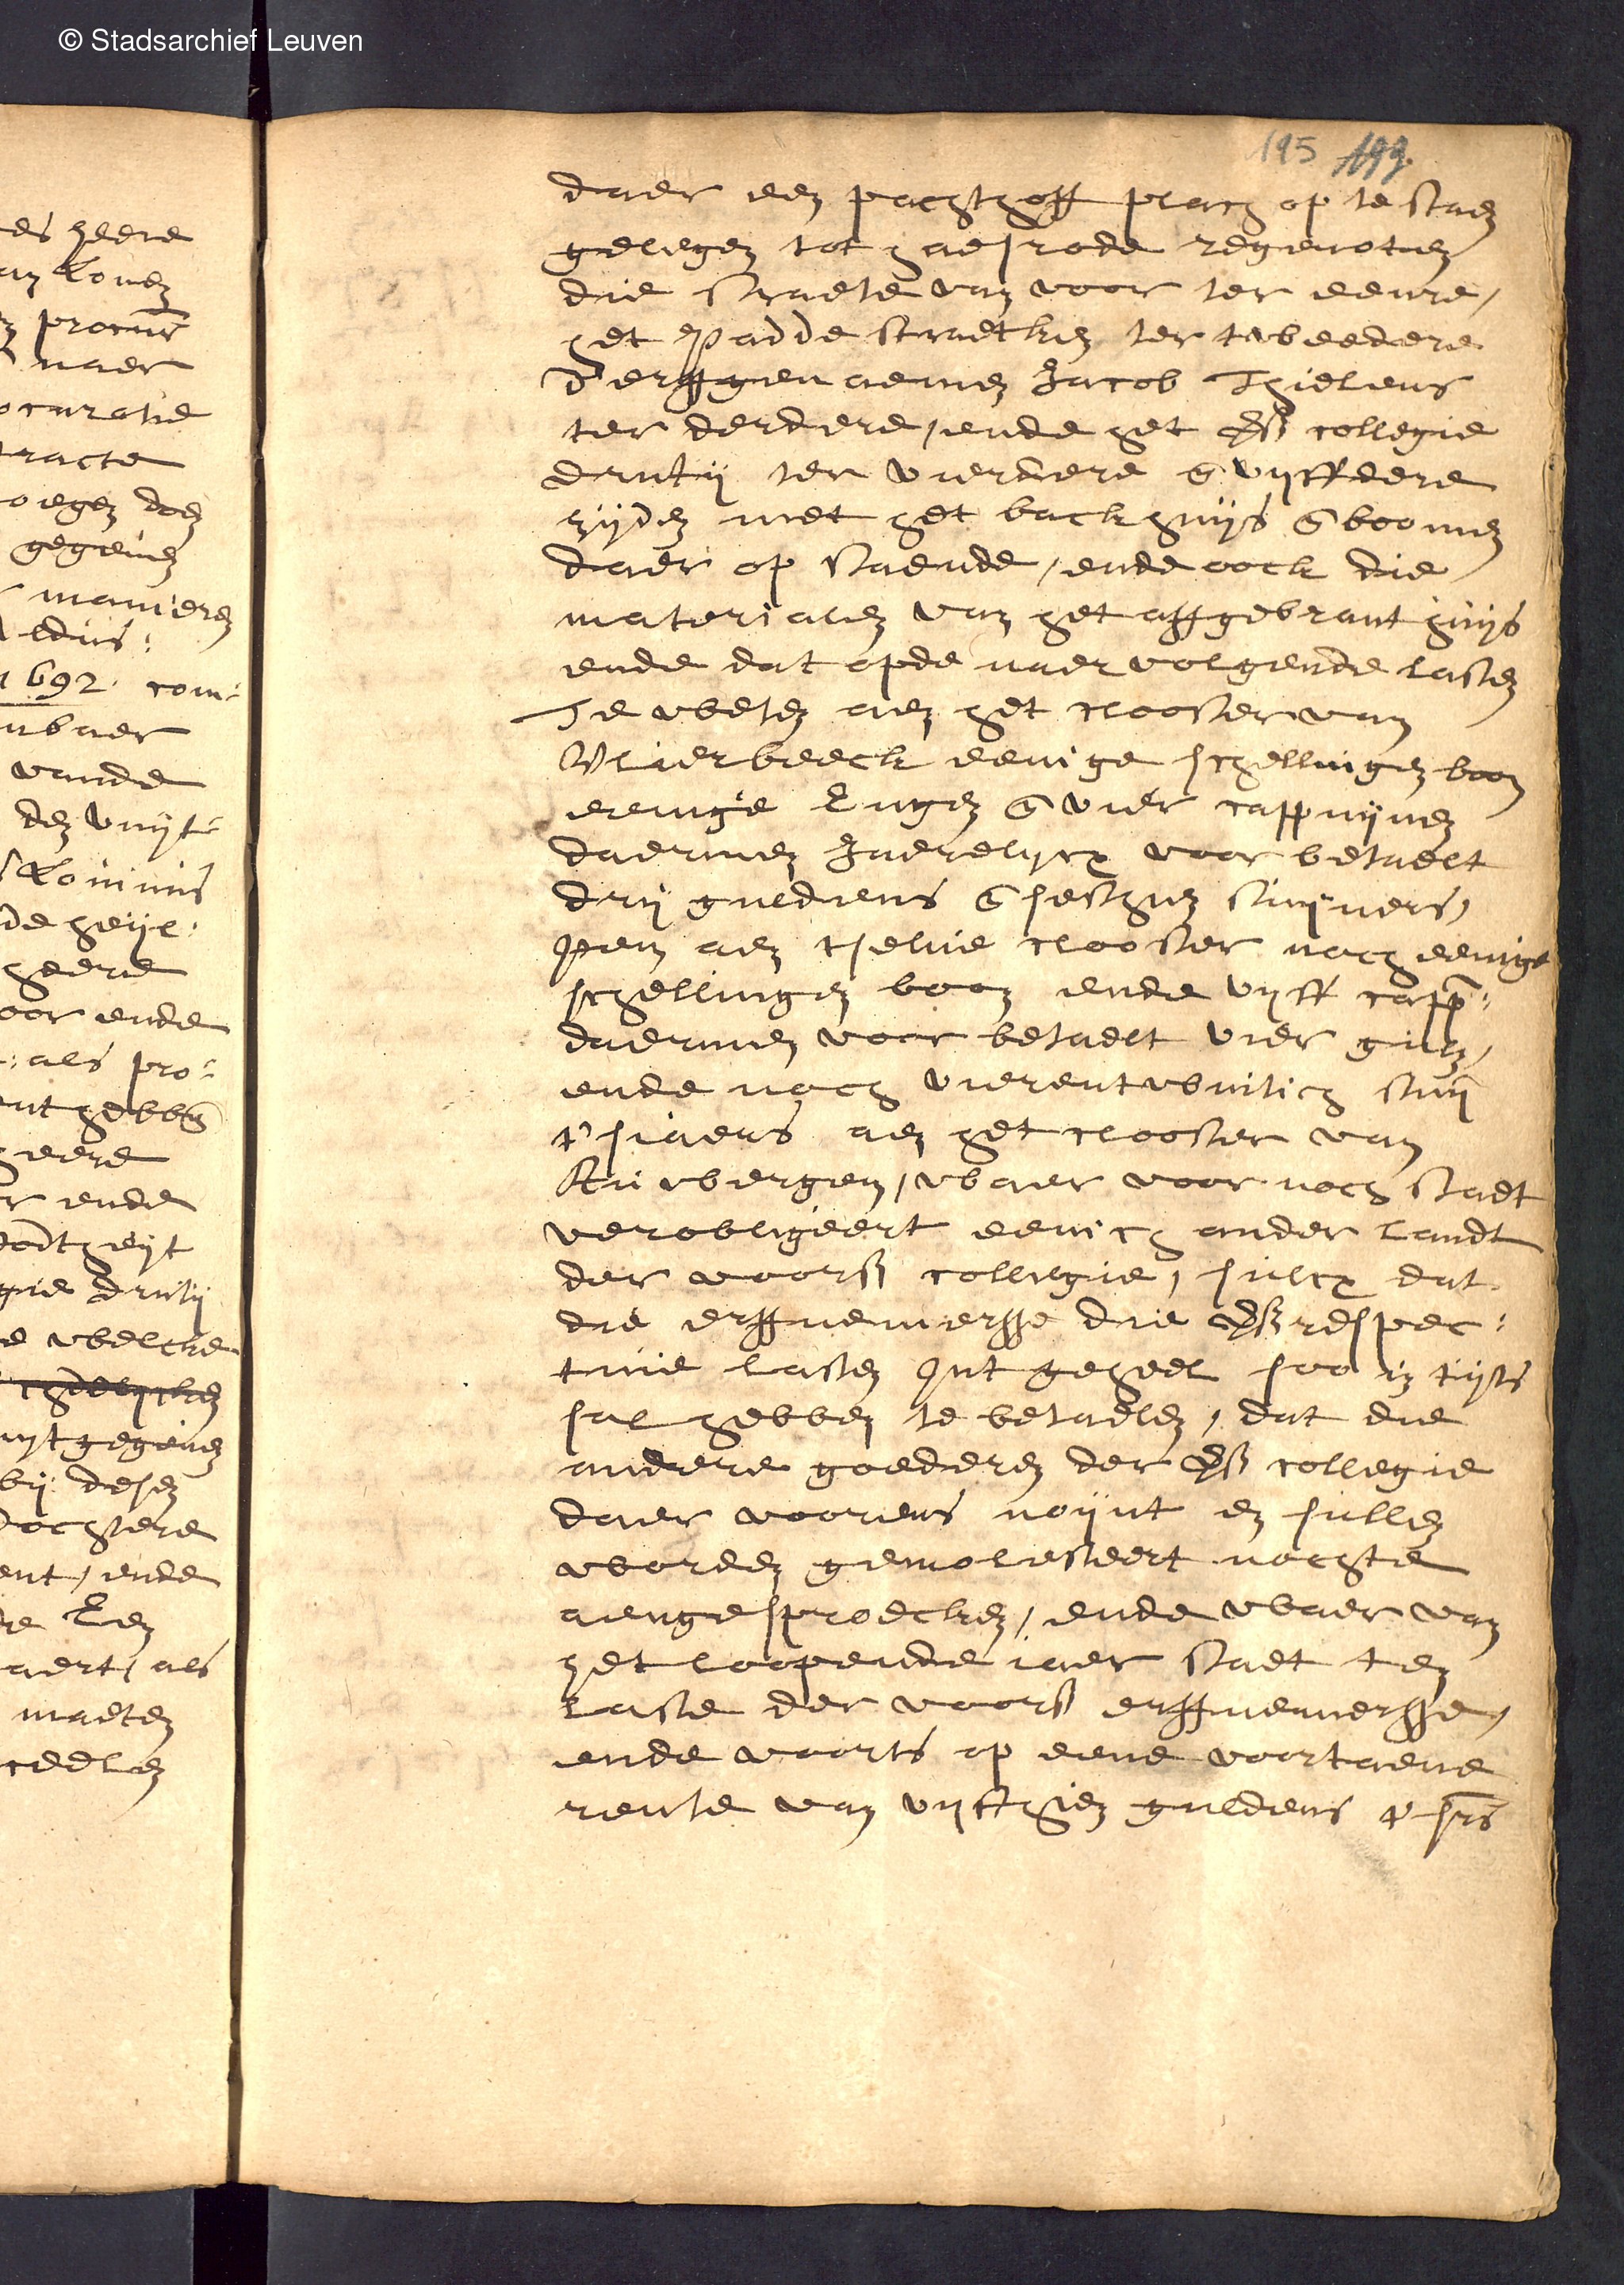 © Stadsarchief Leuven
195 199.
daer een pachthoff plach op te staen
gelegen tot haesrode regenoten
die straete van voor ter eenre,
het Padde straetken ter tweedere
d'erffgenaemen Jacob Thielens
ter derdere, ende het collegie
drutij ter vierdere vijffdere
zijden met het backhuijs boomen
daer op staende, ende oock die
materialen van het affgebrant huijs
ende dat opde naervolgende lasten
Te weten aen het clooster van
Vlierbeeck eenige schellingen boon
eenige Engen vier cappuijnen
daermen Jaerelycx voor betaelt
drij guldens sesthien stuijvers,
Item aen tselve clooster noch eenige
schellingen boon ende vijff capp:
daermen voor betaelt vier guln,
ende noch vierentwintich stuij
t'siaers aen het clooster van
waer voor noch staet
verobligeert eenich ander landt
der voors collegie, sulcx dat
die erffnemersse die respec:
tive lasten Int geheel soo in tijts
sal hebben te betaelen, dat die
andere goederen der collegie
daer vooriens noijnt en sullen
worden gemolesteert nochte
aengesproecken, ende waer van
het loopende iaer staet ten
laste der voors erffnemersse,
ende voorts op eene voortaene
rente van vijffthien guldens t'srs
es heere
an Loven
procur
naer
ocuratie
tracte
oegen doen
gegeven
manieren
aldus:
1692. com:
nbaer
vande
den vuijt:
Kominis
de heijl:
heere
oor ende
als pro:
nt hebben
heere
r ende
gie drutij
e welcke
uijtgegeven
bij desen
dochtere
ent, ende
aert, als
maeten
ceelen